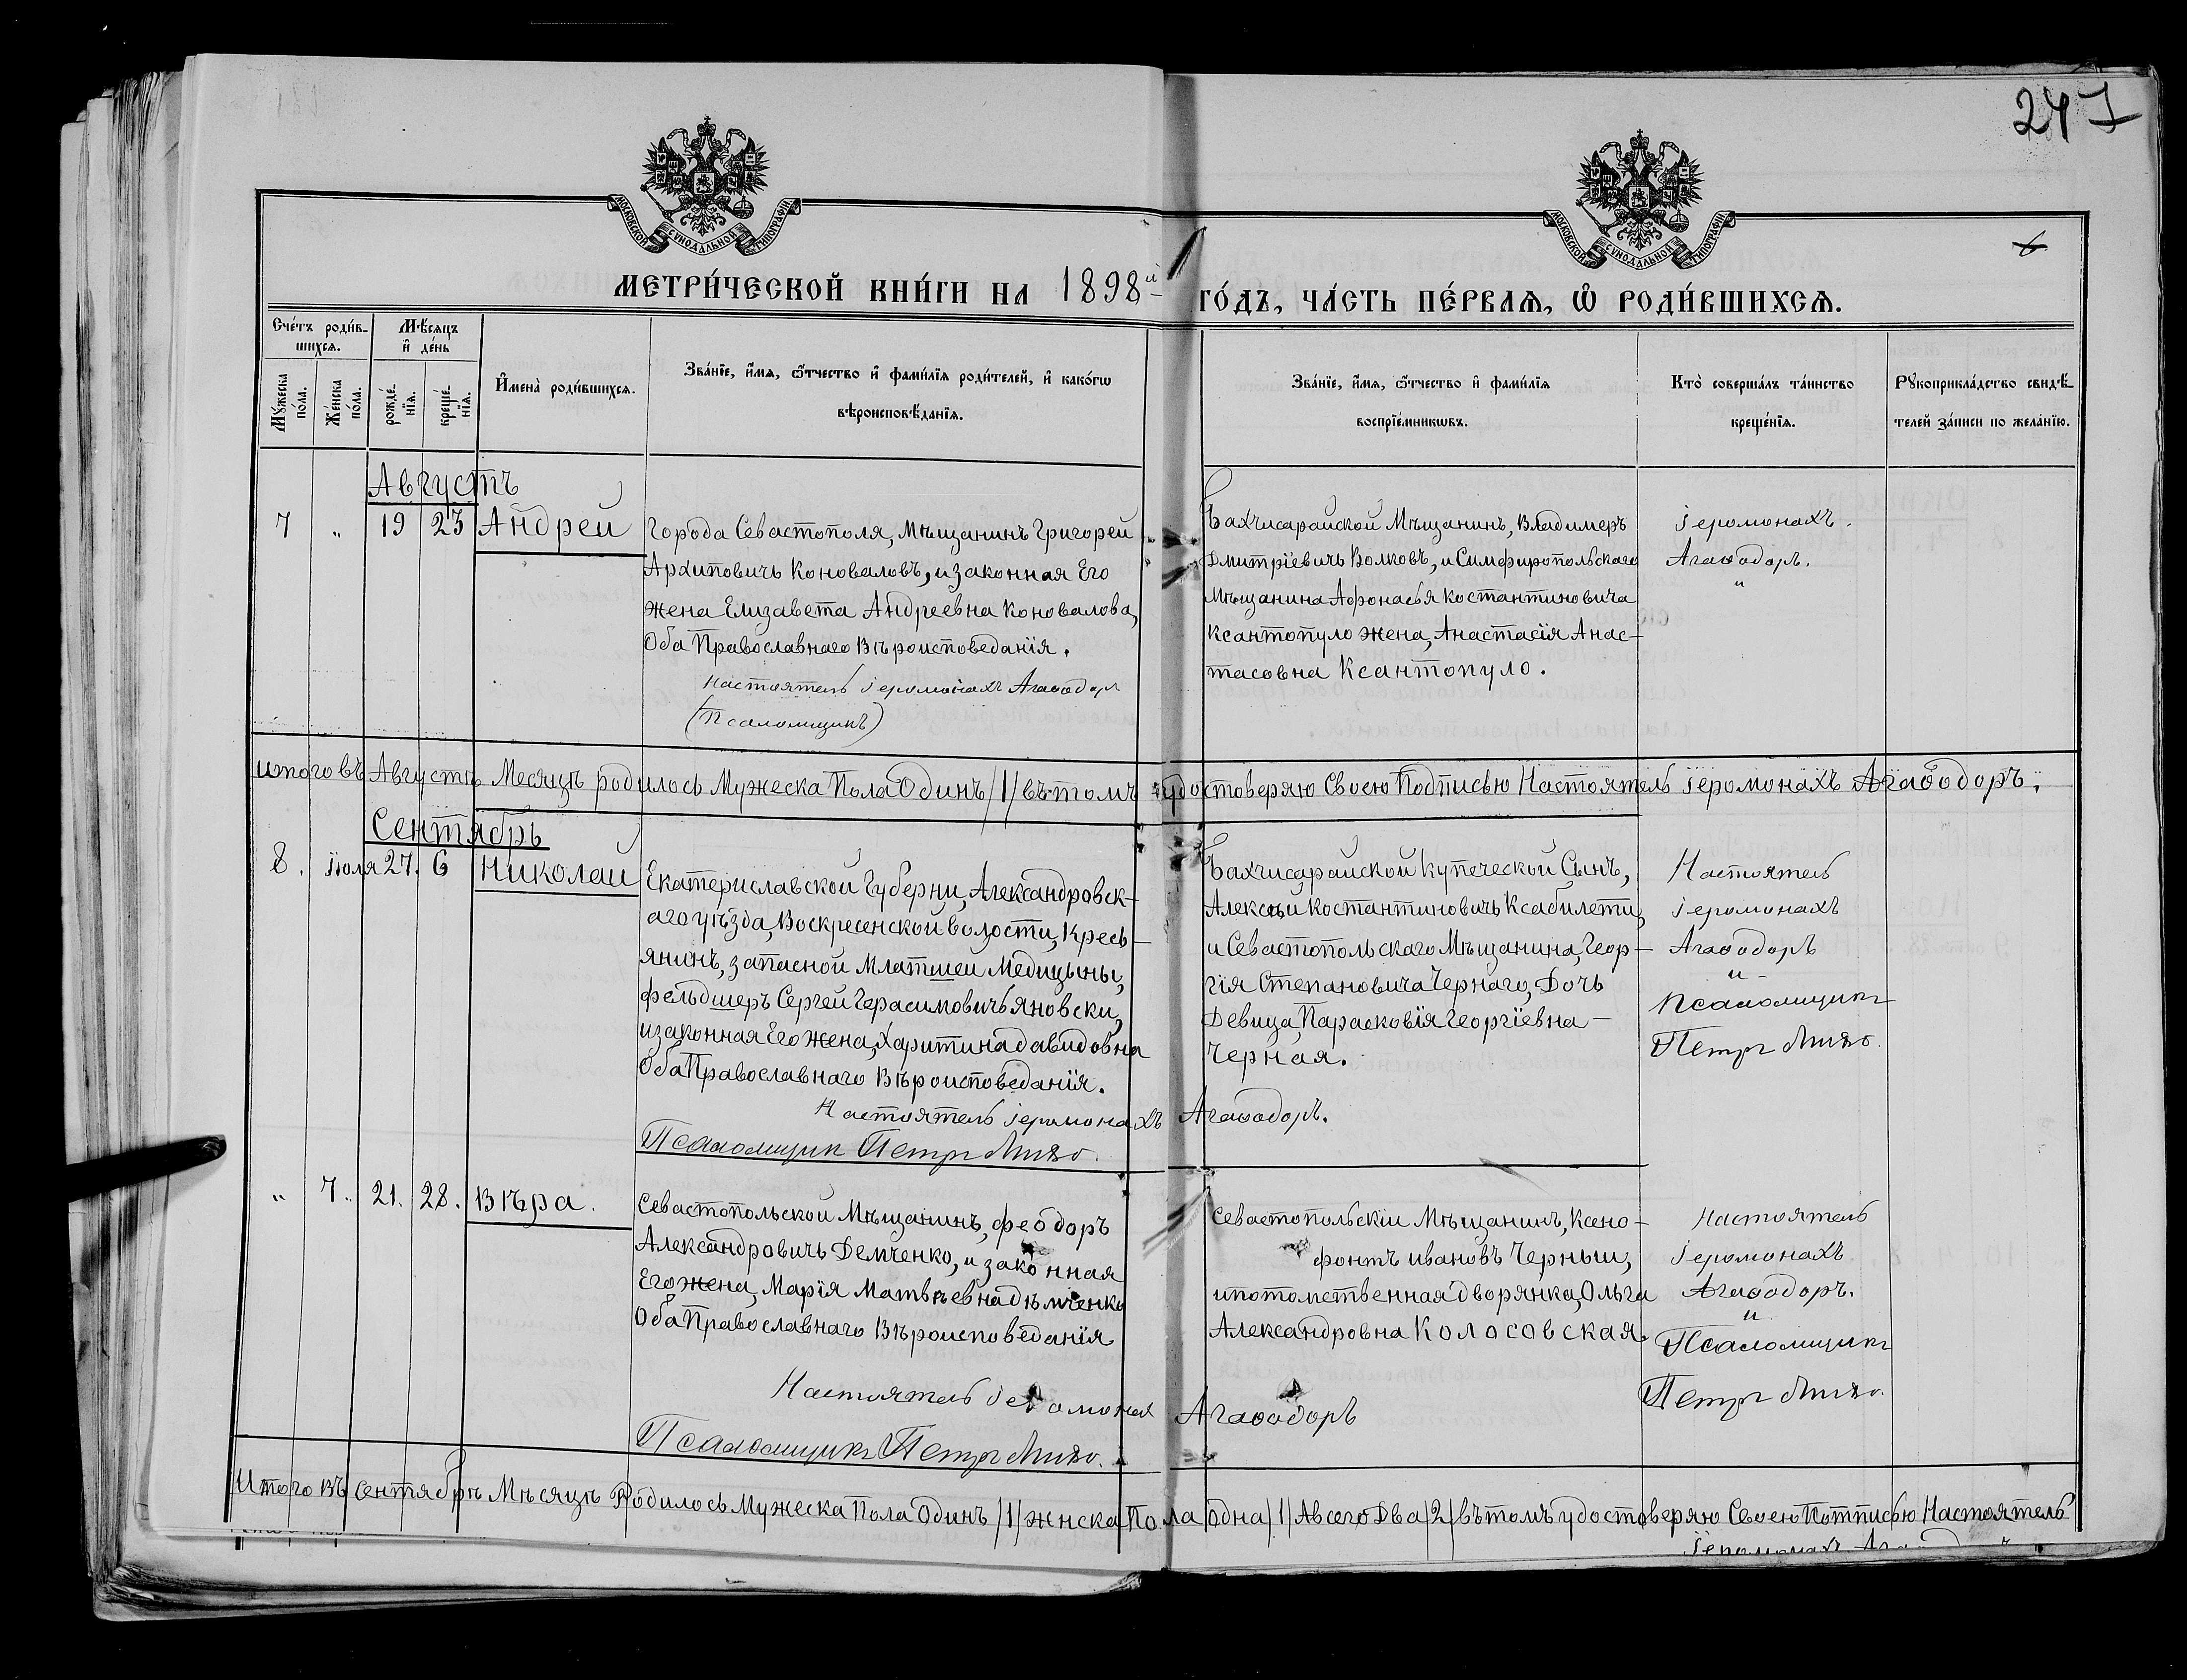 247
МОСКОВСКОЙ СѴНОДАЛЬНОЙ ТИПОГРАФІИ
МОСКОВСКОЙ СѴНОДАЛЬНОЙ ТИПОГРАФІИ
МЕТРИ́ЧЕСКОЙ КНИ́ГИ НА 1898й ГО́ДЪ, ЧА́СТЬ ПЕ́РВАѦ, Ѿ РОДИ́ВШИХСѦ.
Сче́тъ роди́в-
шихсѧ.
Мѣ́сяцъ
и҆ де́нь
Мꙋ́жеска
по́ла.
Же́нска
по́ла.
рожде́-
нїѧ.
креще́-
нїѧ.
И҆мена̀ роди́вшихсѧ.
Зва́нїе, и҆́мѧ, ѻ҆́тчество и҆ фами́лїѧ роди́телей, и҆ како́гѡ
вѣроисповѣ́данїѧ.
Зва́нїе, и҆́мѧ, ѻ҆́тчество и҆ фами́лїѧ
воспрїе́мникѡвъ.
Кто̀ соверша́лъ та́инство
креще́нїѧ.
Рꙋкоприкла́дство свидѣ́-
телей за́писи по жела́нїю.
Августъ
7 " 19 23 Андрей
Города Севастополя, Мѣщанинъ Григорей
Архиповичь Коноваловъ, и законная Его
жена Елизавета Андреевна Коновалова,
Оба Православнаго Вѣроисповеданія.
Настоятель Іеромонахъ Агаѳодоръ
(Псаломщикъ)
Бахчисарайской Мѣщанинъ, Владимеръ
Дмитріевичь Волковъ, и Симфиропольскаго
Мѣщанина Афонасья Костантиновича
Ксантопуло жена, Анастасія Анас-
тасовна Ксантопуло.
Іеромонахъ.
Агаѳодоръ.
"
Итого въ Августѣ Месяцѣ родилось Мужеска Пола Одинъ /1/ въ томъ удостоверяю Своею Подписью Настоятель Іеромонахъ Агаѳодоръ.
Сентябрь
8. Іюля 27. 6 Николай
Екатериславской Губерни, Александровск-
аго уѣзда, Воскресенской волости, Кресь-
янинъ, запасной Млатшеи Медицыны,
фельдшеръ Сергей Герасимовичь Яновски,
и законная Его жена, Харитина Давидовна
Оба Православнаго Вѣроисповеданія.
Настоятель Іеромонахъ Агаѳодоръ.
Псаломщик Петръ
Бахчисарайской Купеческой Сынъ,
Алексѣй Костантиновичь Ксабилети,
и Севастопольскаго Мѣщанина, Геор-
гія Степановича Чернаго, Дочь
Девица, Парасковія Георгіевна-
Черная.
Настоятель
Іеромонахъ
Агаѳодоръ
и -
Псаломщикъ
Петръ
" 7. 21. 28. Вѣра.
Севастопольской Мѣщанинъ, Феодоръ
Александровичь Демченко, и законная
Его жена, Марія Матвѣевна Дѣмченко
Оба Православнаго Вѣроисповеданія
Настоятель Іеромонах Агаѳодоръ
Псаломщикъ Петръ
Севастопольскіи Мѣщанинъ, Ксено-
фонтъ ивановъ Черныи,
и потомственная дворянка, Ольга
Александровна Колосовская.
Настоятель
Іеромонахъ
Агаѳодоръ.
и
Псаломщикъ
Петръ
Итого въ Сентябрѣ Мѣсяцѣ Родилось Мужеска Пола Одинъ /1/ жнска Пола Одна /1/ А всего Два /2/ въ томъ удостоверяю Своею Потписью Настоятель